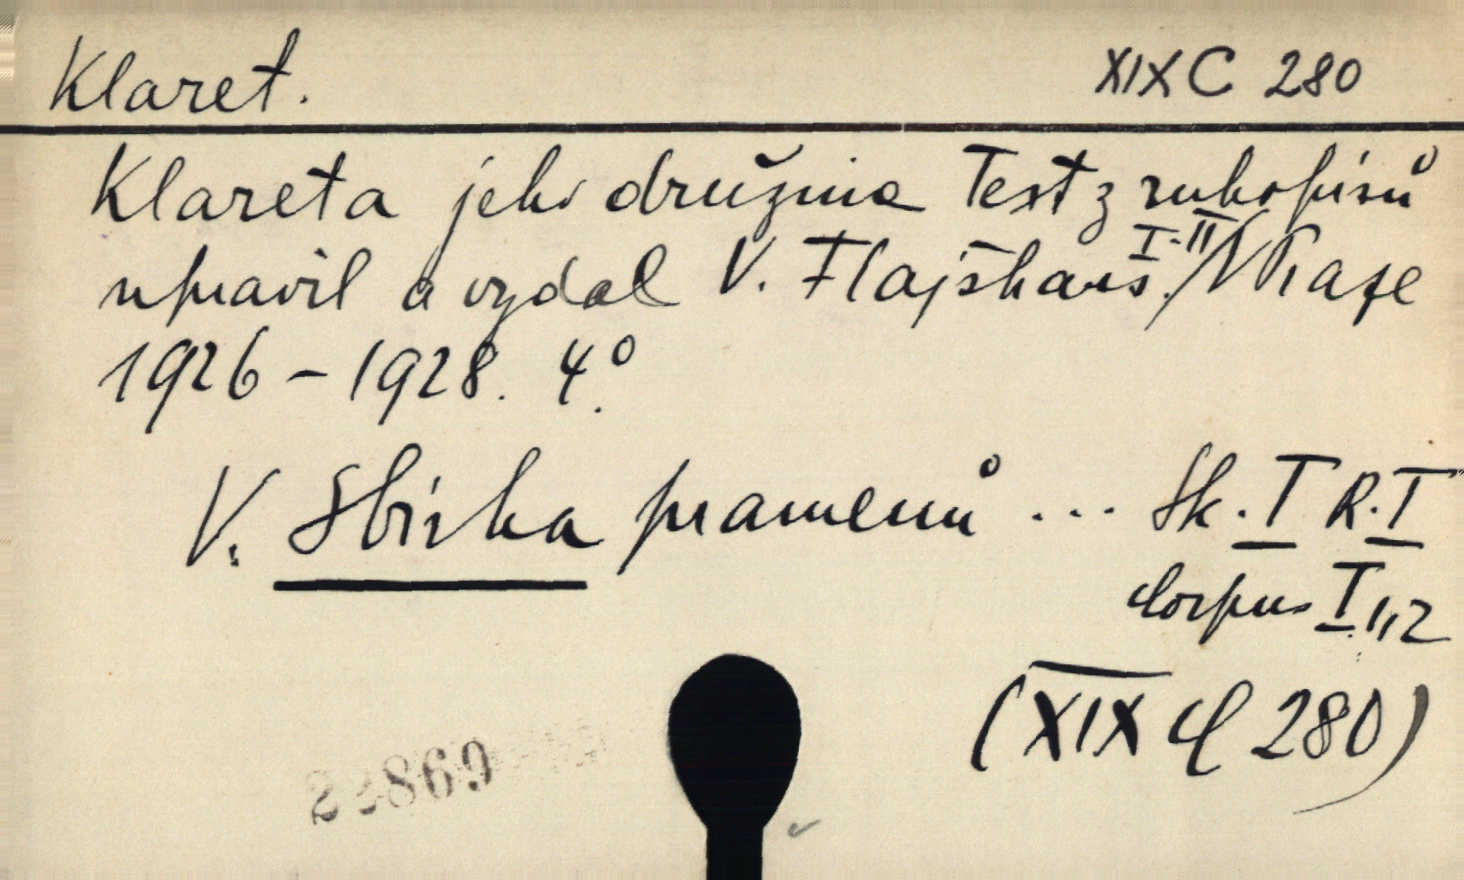 Klaret.
XIX C 280
Klareta jeho družina Text z rukopisů
I-II
upravil a vydal V. Flajšhans. / V Praze
1926 – 1928. 4°.
V. Sbírka pramenů ... Sk. I R. I
Corpus I, 1, 2
(XIX C 280)